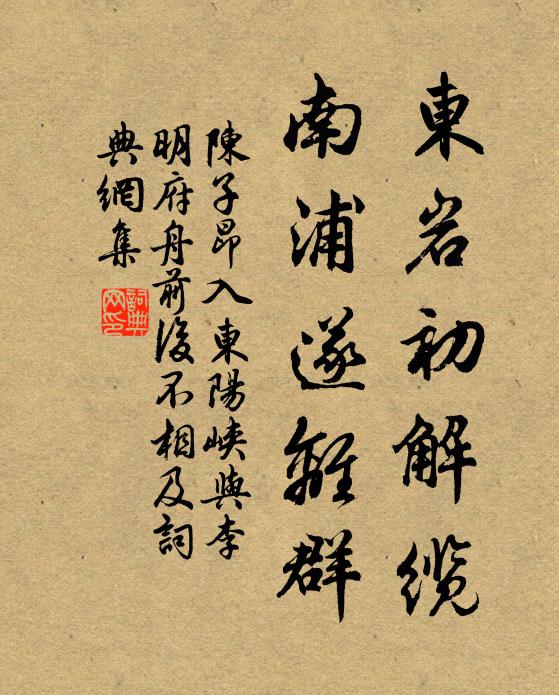 東岩初解缆
南浦遂離群
陳子昂入東陽峡與李
明府舟前後不相及詞
典網集
詞典
网印